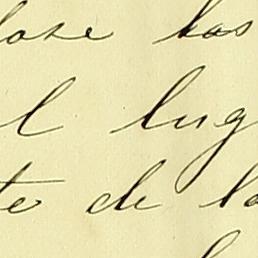 lose las
l lug
te de la